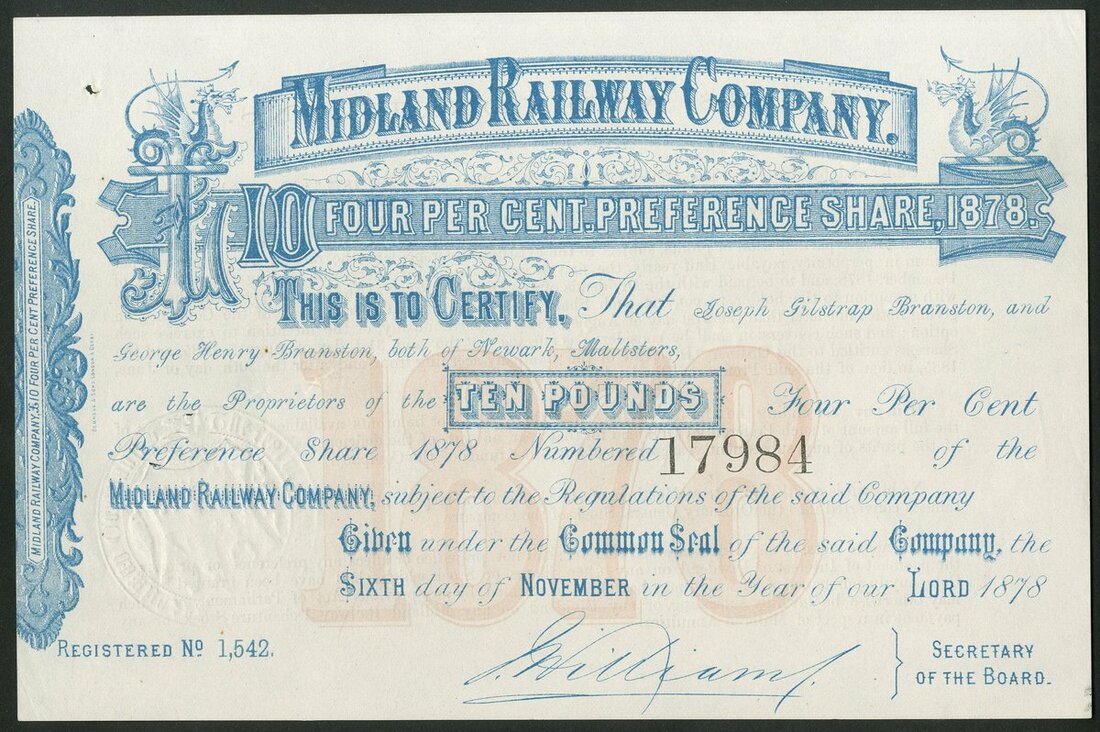 MIDLAND RAILWAY COMPANY.
£10 FOUR PER CENT. PREFERENCE SHARE, 1878.
THIS IS TO CERTIFY, That Joseph Gilstrap Branston, and
George Henry Branston, both of Newark, Maltsters,
are the Proprietors of the TEN POUNDS Four Per Cent
Preference Share 1878 Numbered 17984 of the
MIDLAND RAILWAY COMPANY, subject to the Regulations of the said Company
Given under the Common Seal of the said Company, the
SIXTH day of NOVEMBER in the Year of our LORD 1878
REGISTERED No 1,542.
J. Williams
SECRETARY
OF THE BOARD.
MIDLAND RAILWAY COMPANY, £10 FOUR PER CENT PREFERENCE SHARE.
1878